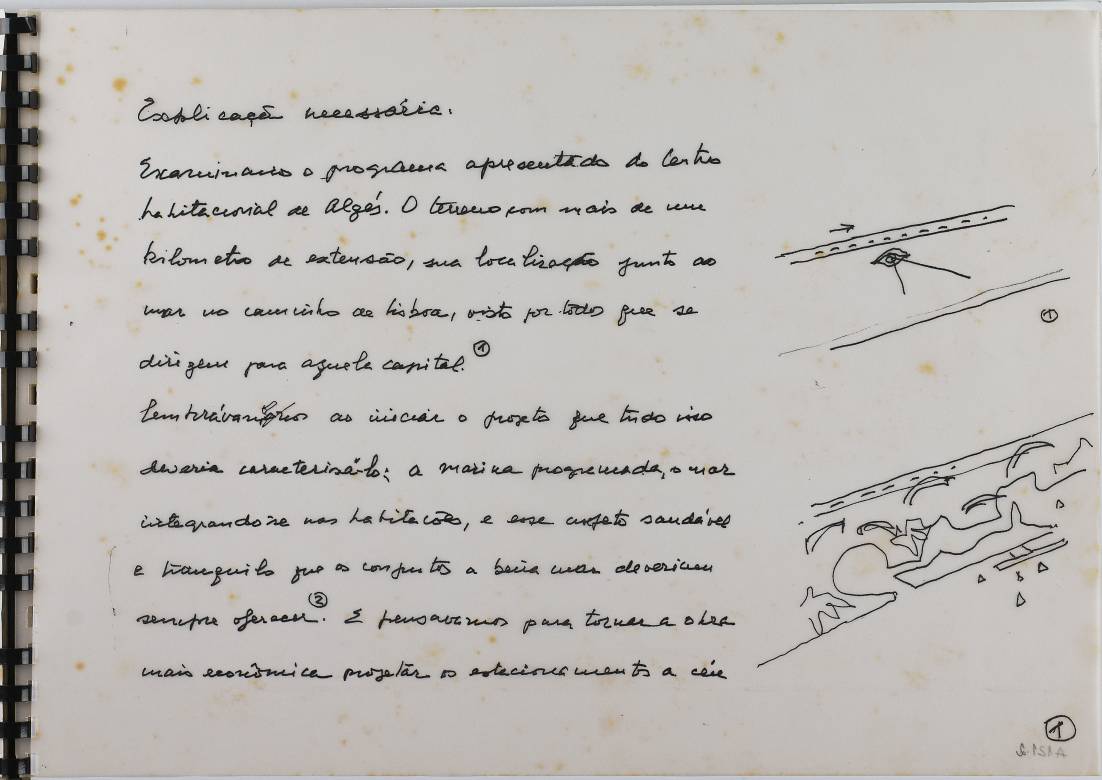 Explicação necessária.
Examinamos o programa apresentado do Centro
habitacional de Algés. O terreno com mais de um
kilometro de extensão, sua localização junto ao
mar no caminho de Lisboa, visto por todos que se
dirigem para aquela capital. ①
Lembrávamos ao iniciar o projeto que tudo isso
deveria caracterisá-lo; a marina programada, o mar
integrando-se nas habitacões, e esse aspeto saudável
e tranquilo que os conjuntos a beira mar deveriam
sempre oferecer ②. E pensavamos para tornar a obra
mais econômica projetar os estacionamentos a céu
①
①